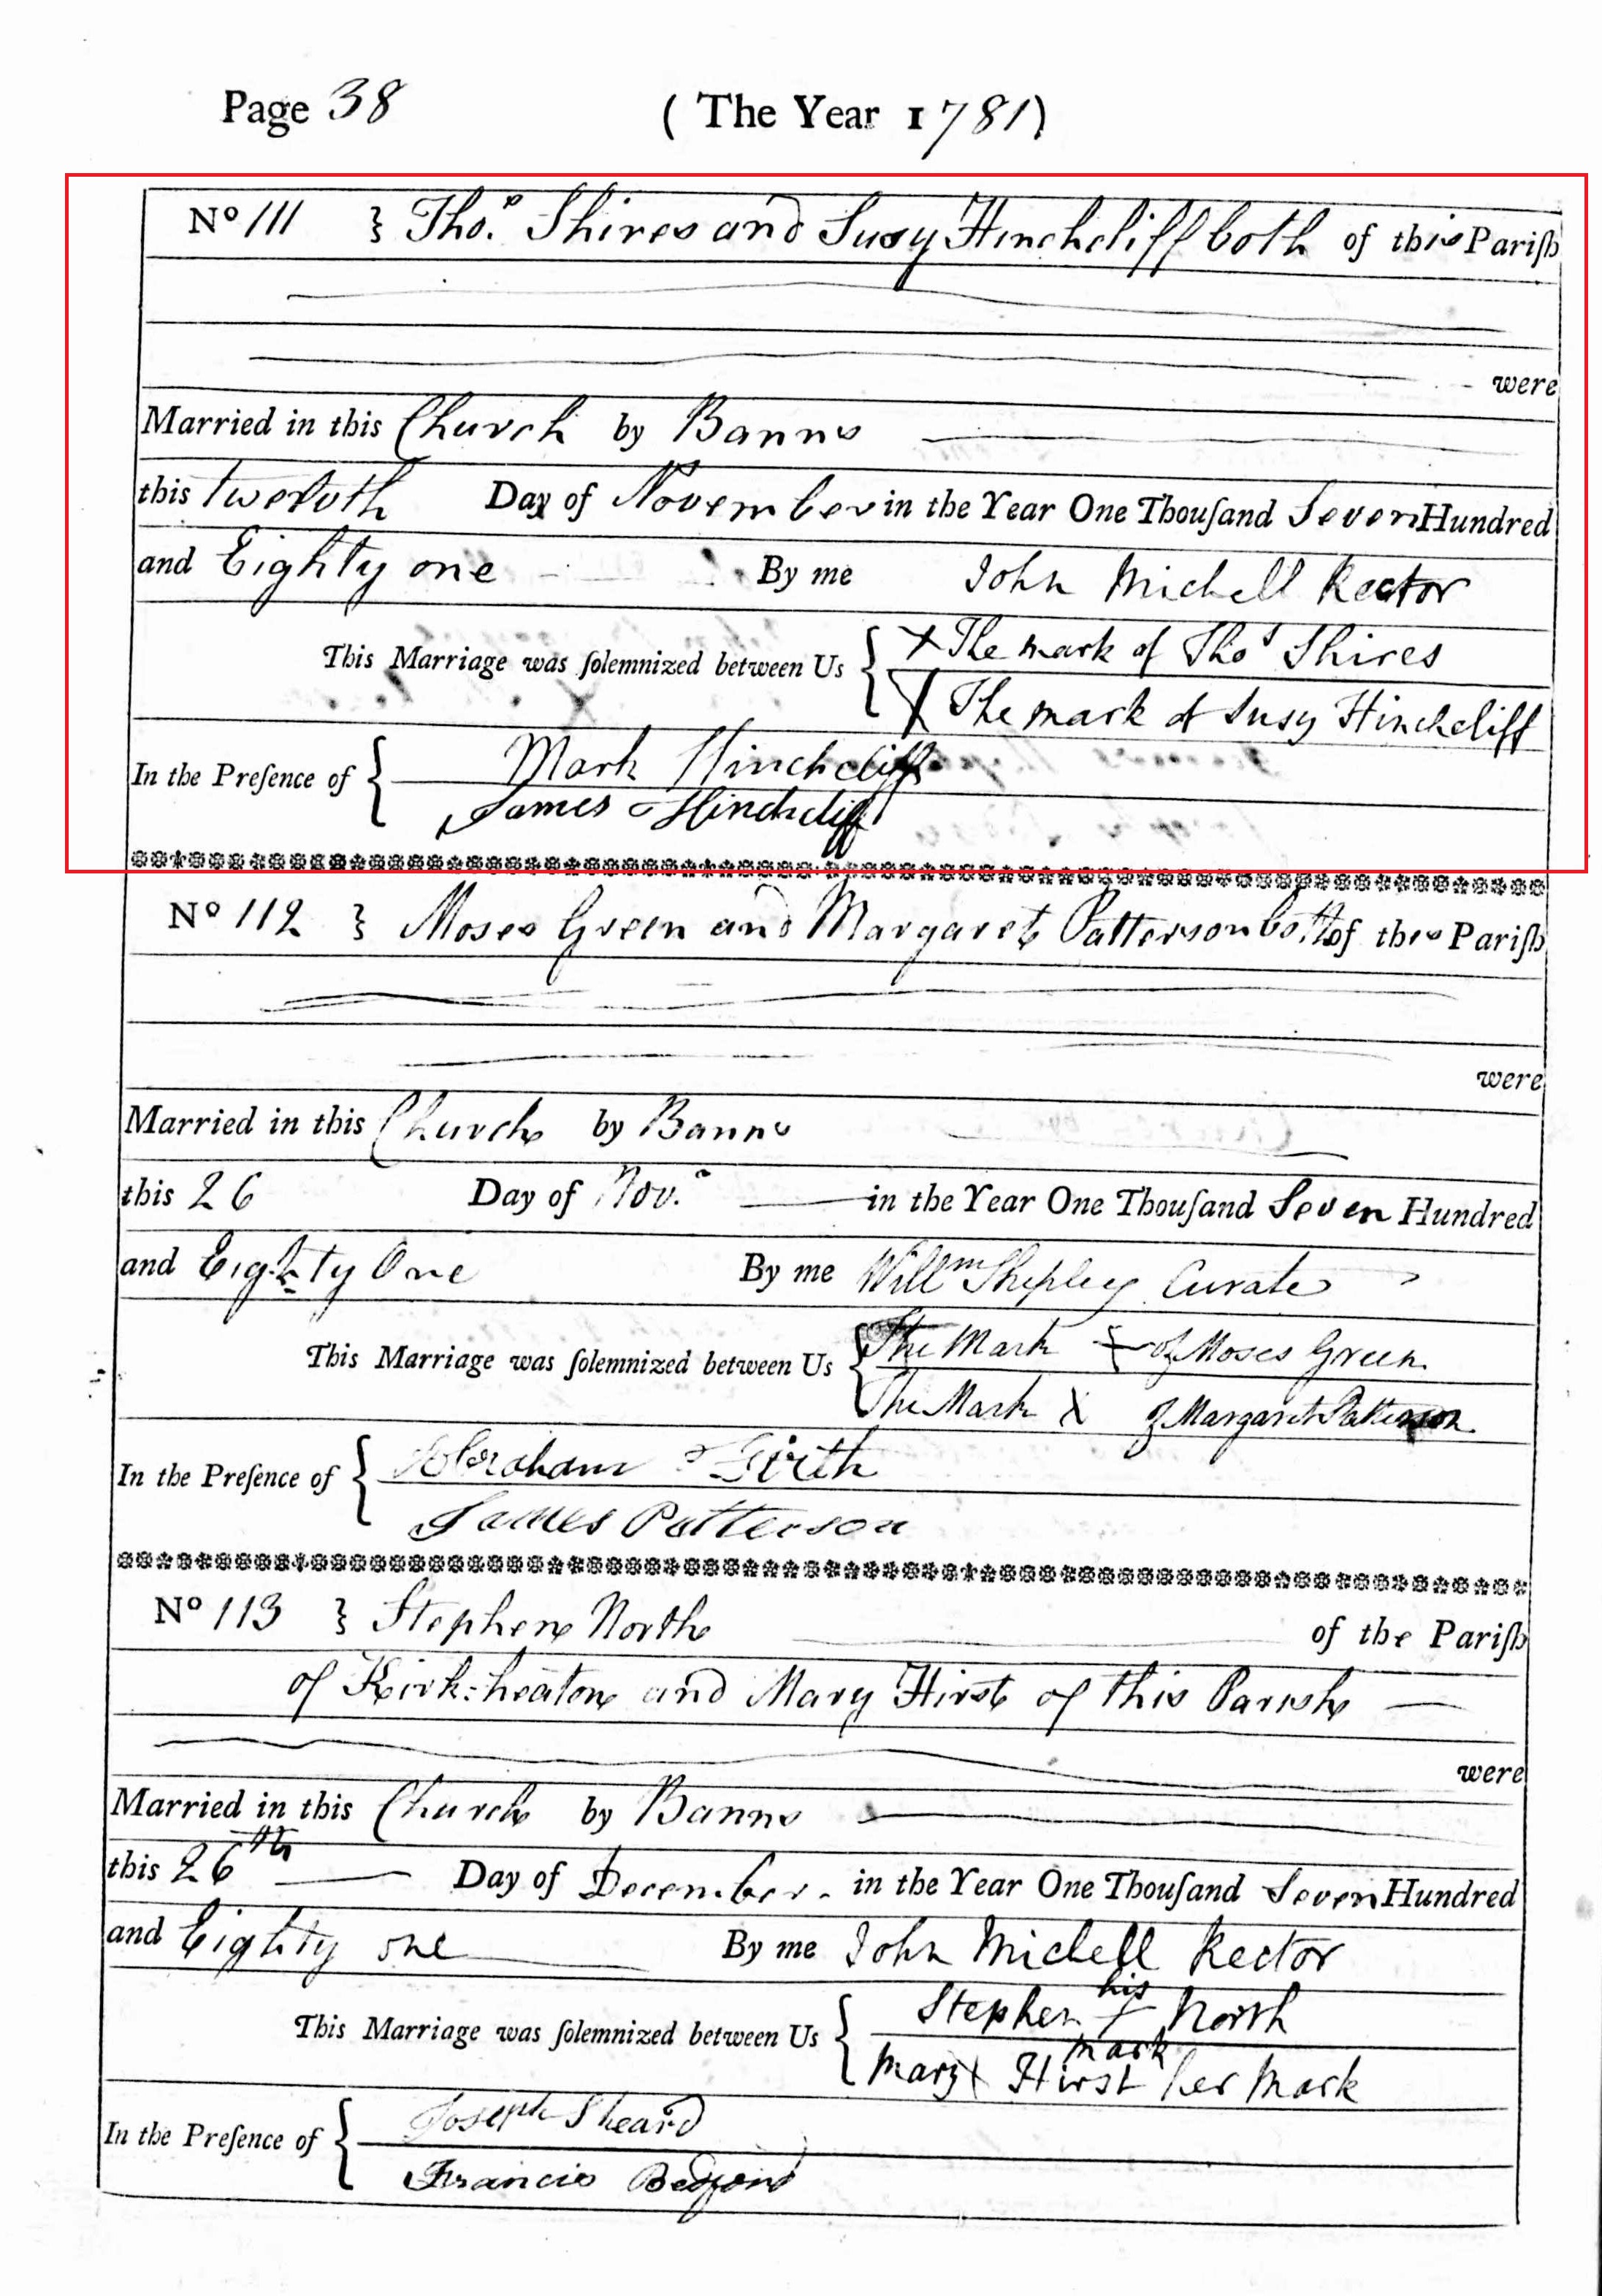 Page 38 (The Year 1781)
No 111 } Thos. Shires and Susy Hinchcliff both of this Pariſh
were
Married in this Church by Banns
this twelvth Day of November in the Year One Thouſand Seven Hundred
and Eighty one By me John Michell Rector
This Marriage was ſolemnized between Us { X The mark of Thos Shires
X The mark of Susy Hinchcliff
In the Preſence of { Mark Hinchcliff
James Hinchcliff
No 112 } Moses Green and Margaret Patterson both of this Pariſh
were
Married in this Church by Banns
this 26 Day of Nov.r in the Year One Thouſand Seven Hundred
and Eighty One By me Willm Shepley Curate
This Marriage was ſolemnized between Us { The Mark X of Moses Green
The Mark X of Margaret Patterson
In the Preſence of { Abraham Firth
James Patterson
No 113 } Stephen North of the Pariſh
of Kirk-heaton and Mary Hirst of this Parish
were
Married in this Church by Banns
this 26th Day of December in the Year One Thouſand Seven Hundred
and Eighty one By me John Michell Rector
This Marriage was ſolemnized between Us { Stephen his X mark North
Mary X Hirst her Mark
In the Preſence of { Joseph Sheard
Francis Bedford